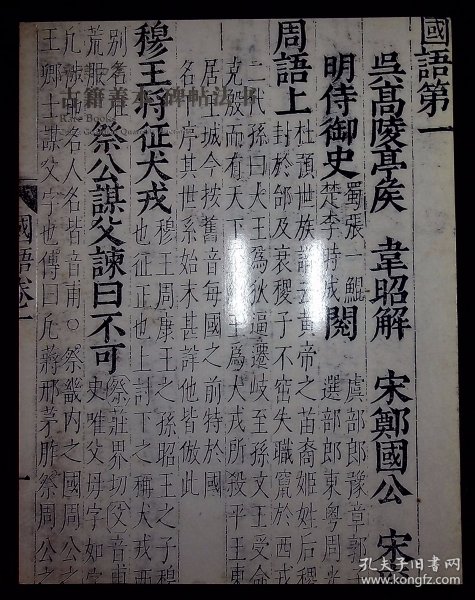 國語第一
吳高陵亭矦 韋昭解 宋鄭國公 宋
明侍御史 蜀張一鯤 楚李時成 閱 虞部郎豫章郭 選部郎東粵周光
周語上
杜預世族譜云黃帝之苗裔姬姓后稷
封於邰及衰稷子不窋失職竄於西戎
二代孫曰大王爲狄逼遷岐至孫文王受命
克殷而有天下 王爲犬戎所殺平王東
居王城今按舊音每國之前特於國
名下序其世系始末甚詳他皆倣此
穆王將征犬戎
穆王周康王之孫昭王之子穆
也征正也上討下之稱犬戎西
別名
荒服 祭公謀父諫曰不可
祭莊界切父音甫
史唯父母字如字
凡涉地名人名皆音甫○祭畿内之國周公之
王卿士謀父字也傳曰凡蔣邢茅胙祭周公之
國語卷一
一
古籍善本 碑帖法书
Rare Books
孔夫子旧书网
www.kongfz.com